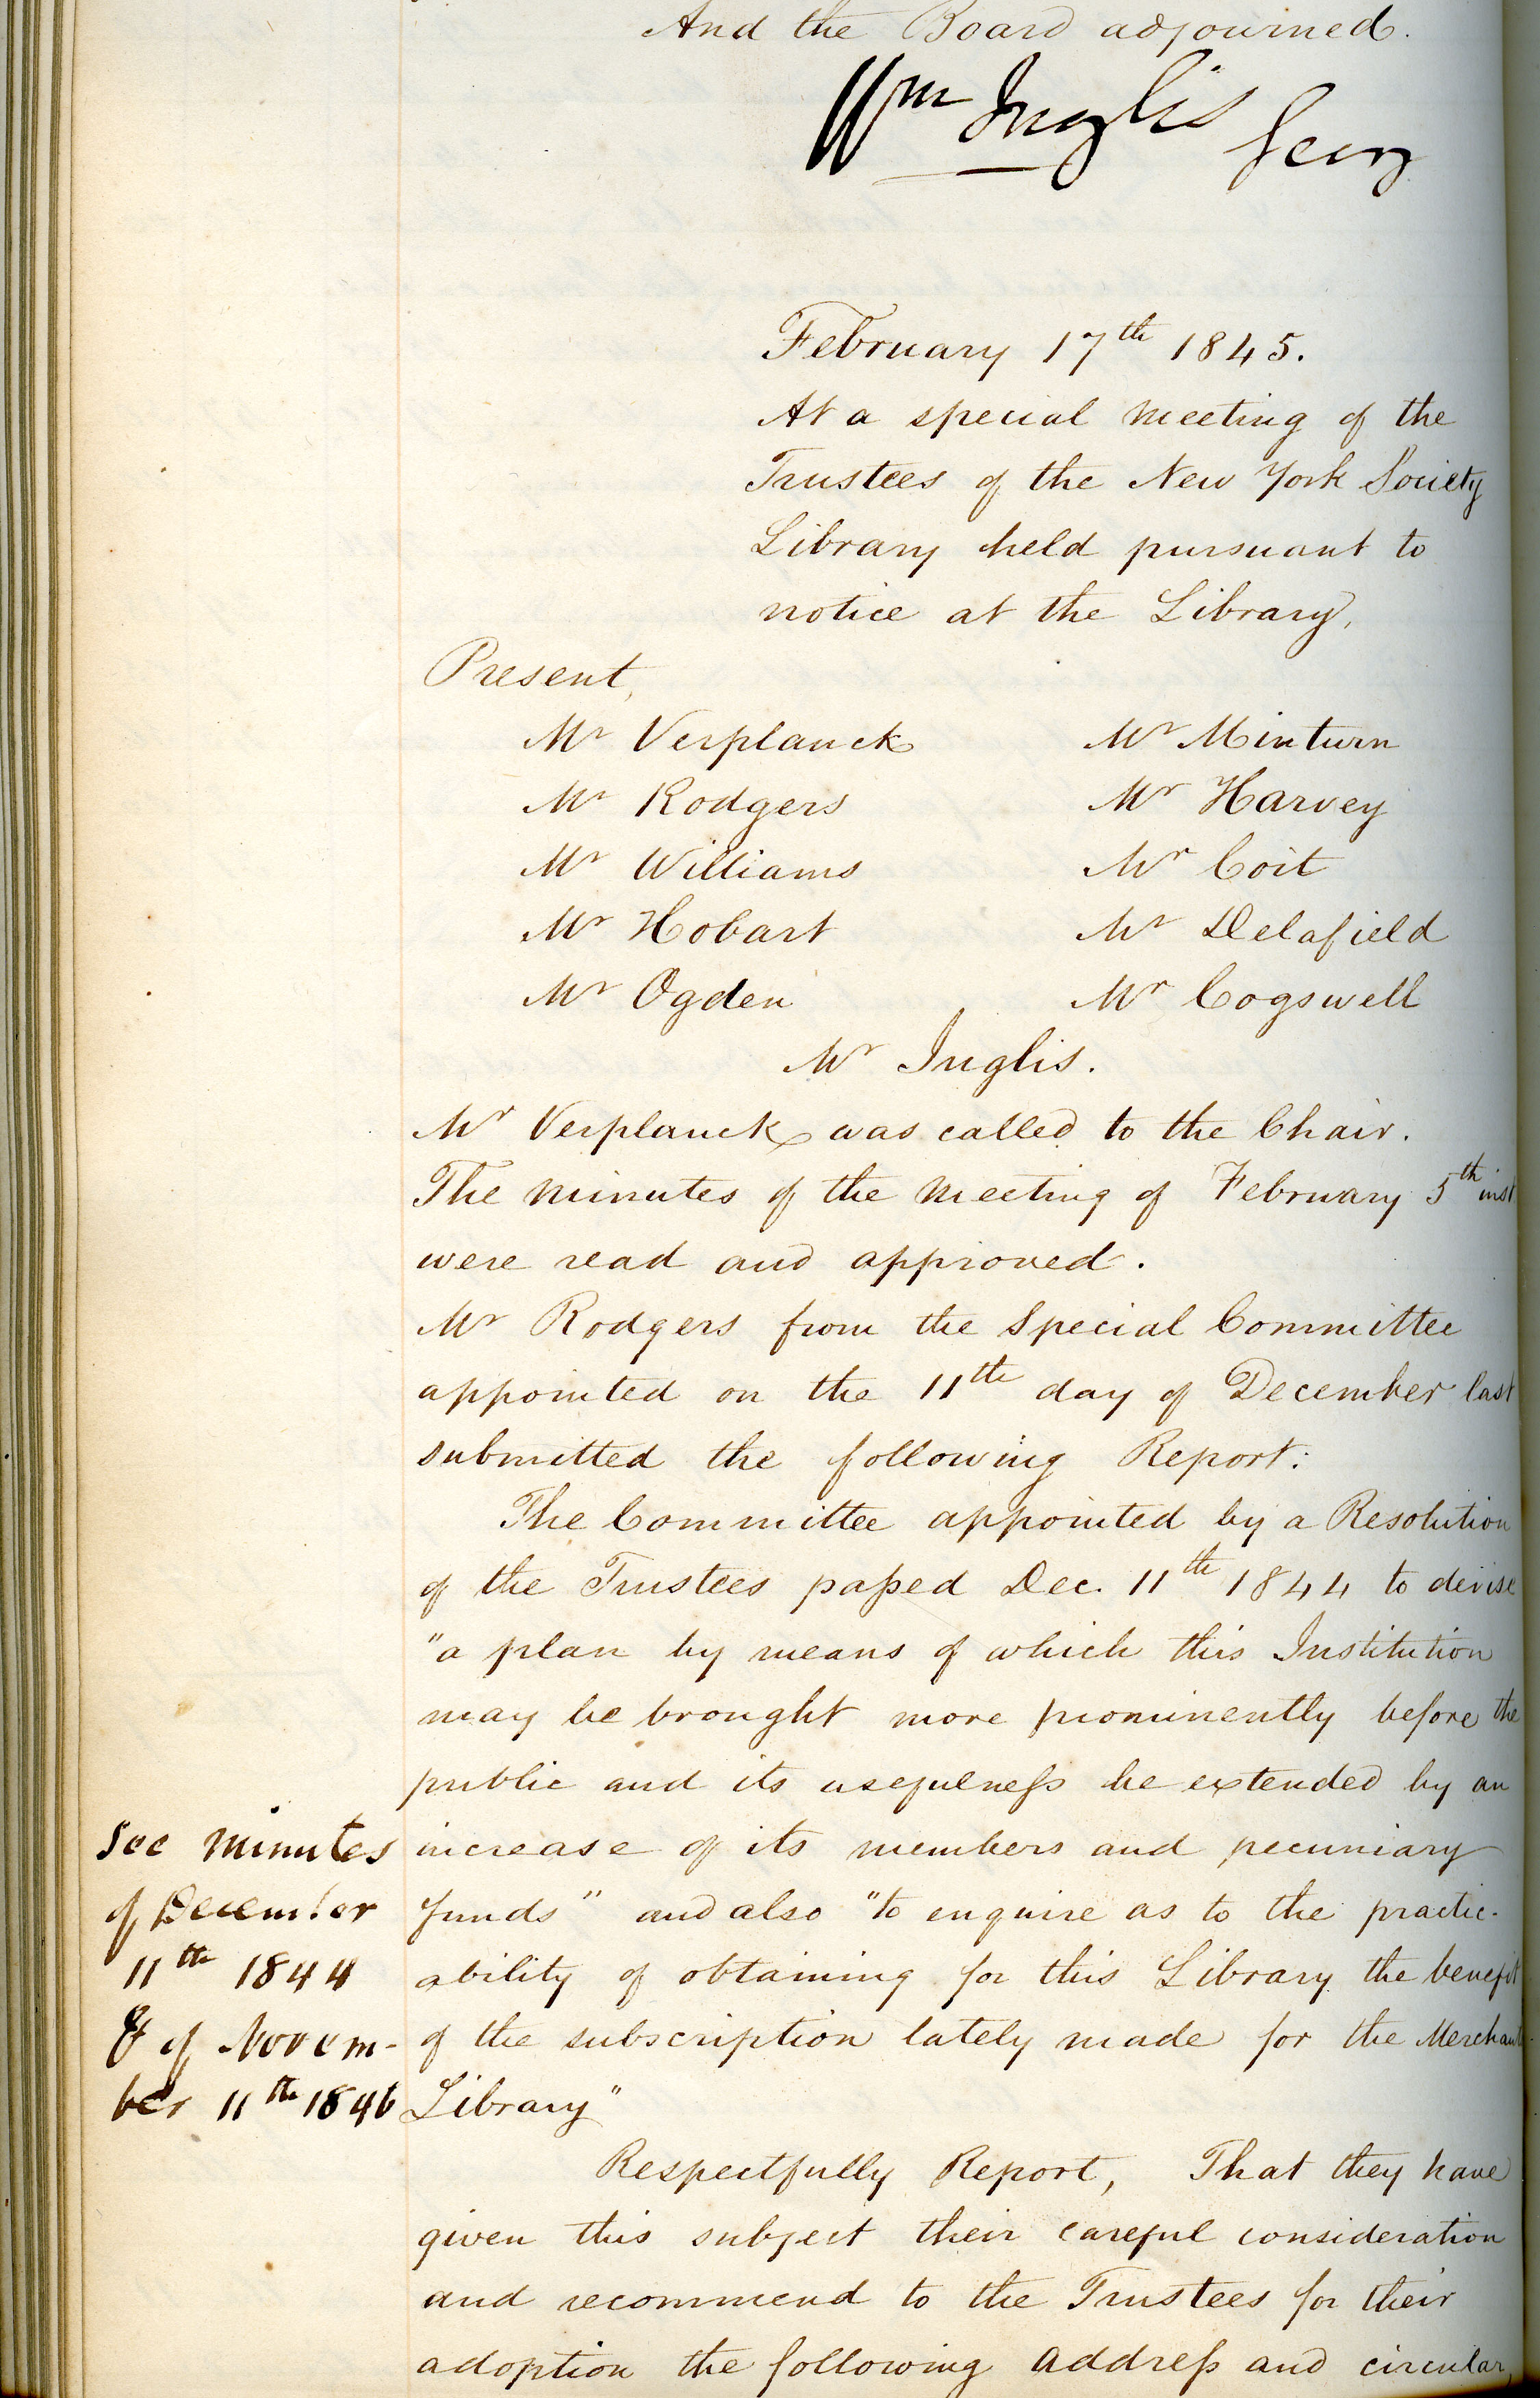 And the Board adjourned.
Wm Inglis Secy
February 17th 1845.
At a special meeting of the
Trustees of the New York Society
Library held pursuant to
notice at the Library,
Present,
Mr Verplanck Mr Minturn
Mr Rodgers Mr Harvey
Mr Williams Mr Coit
Mr Hobart Mr Delafield
Mr Ogden Mr Cogswell
Mr Inglis.
Mr Verplanck was called to the Chair.
The minutes of the meeting of February 5th inst
were read and approved.
Mr Rodgers from the Special Committee
appointed on the 11th day of December last
submitted the following Report:
The Committee appointed by a Resolution
of the Trustees paſsed Dec. 11th 1844 to devise
"a plan by means of which this Institution
may be brought more prominently before the
public and its usefulneſs be extended by an
increase of its members and pecuniary
funds" and also "to enquire as to the practic-
ability of obtaining for this Library the benefit
of the subscription lately made for the Merchants
Library"
See minutes
of December
11th 1844
& of Novem-
ber 11th 1846
Respectfully Report, That they have
given this subject their careful consideration
and recommend to the Trustees for their
adoption the following addreſs and circular,